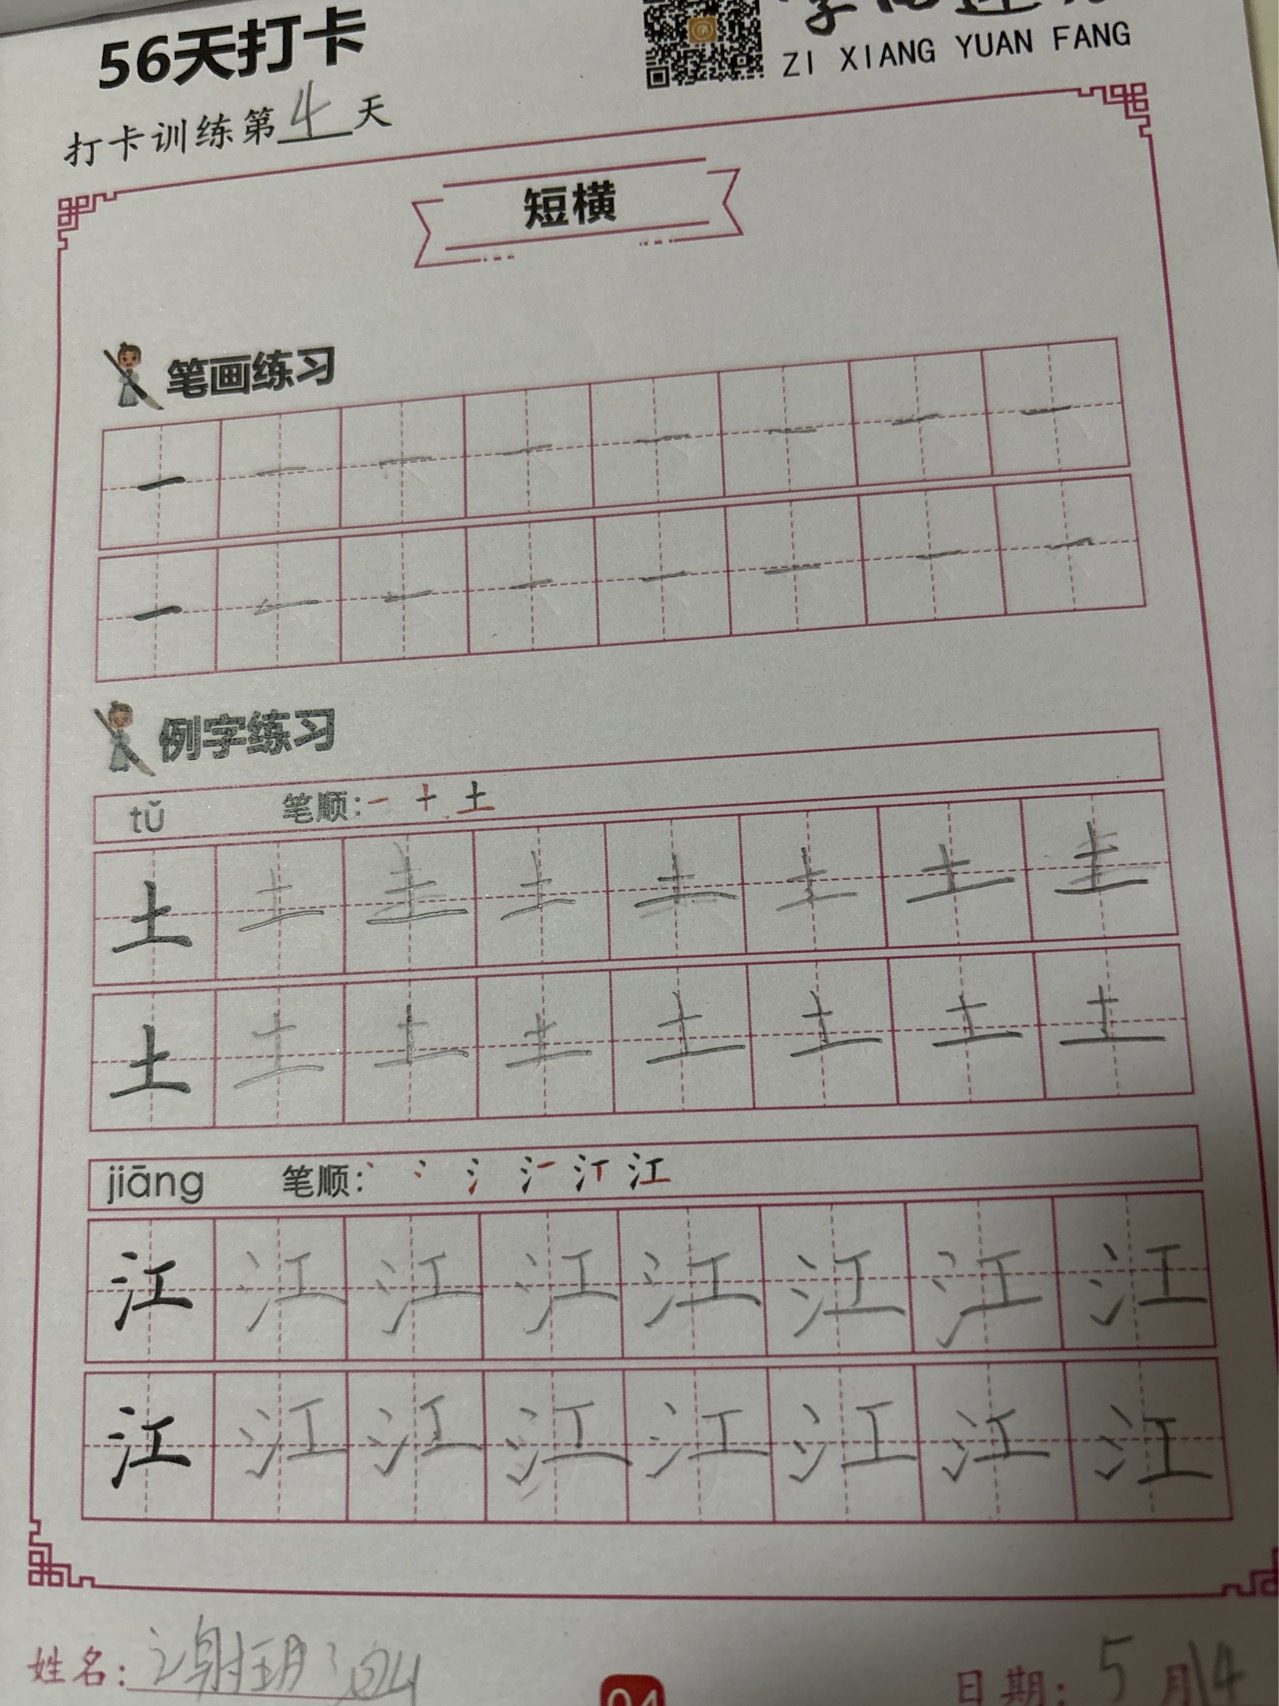 56天打卡
ZI XIANG YUAN FANG
打卡训练第4天
短横
笔画练习
一 一 一 一 一 一 一 一
一 一 一 一 一 一 一 一
例字练习
tǔ 笔顺: 一 十 土
土 土 土 土 土 土 土 土
土 土 土 土 土 土 土 土
jiāng 笔顺: 江
江 江 江 江 江 江 江 江
江 江 江 江 江 江 江 江
姓名: 谢玥
日期: 5月14
04